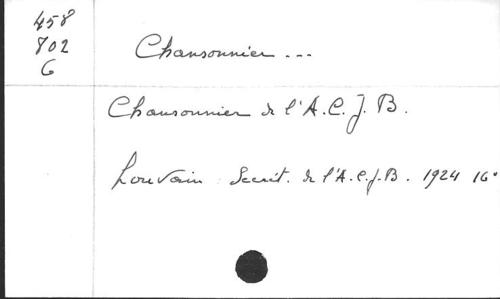 458
802
G
Chansonnier ...
Chansonnier de l'A.C.J.B.
Louvain Secrét. de l'A.C.J.B. 1924 16°